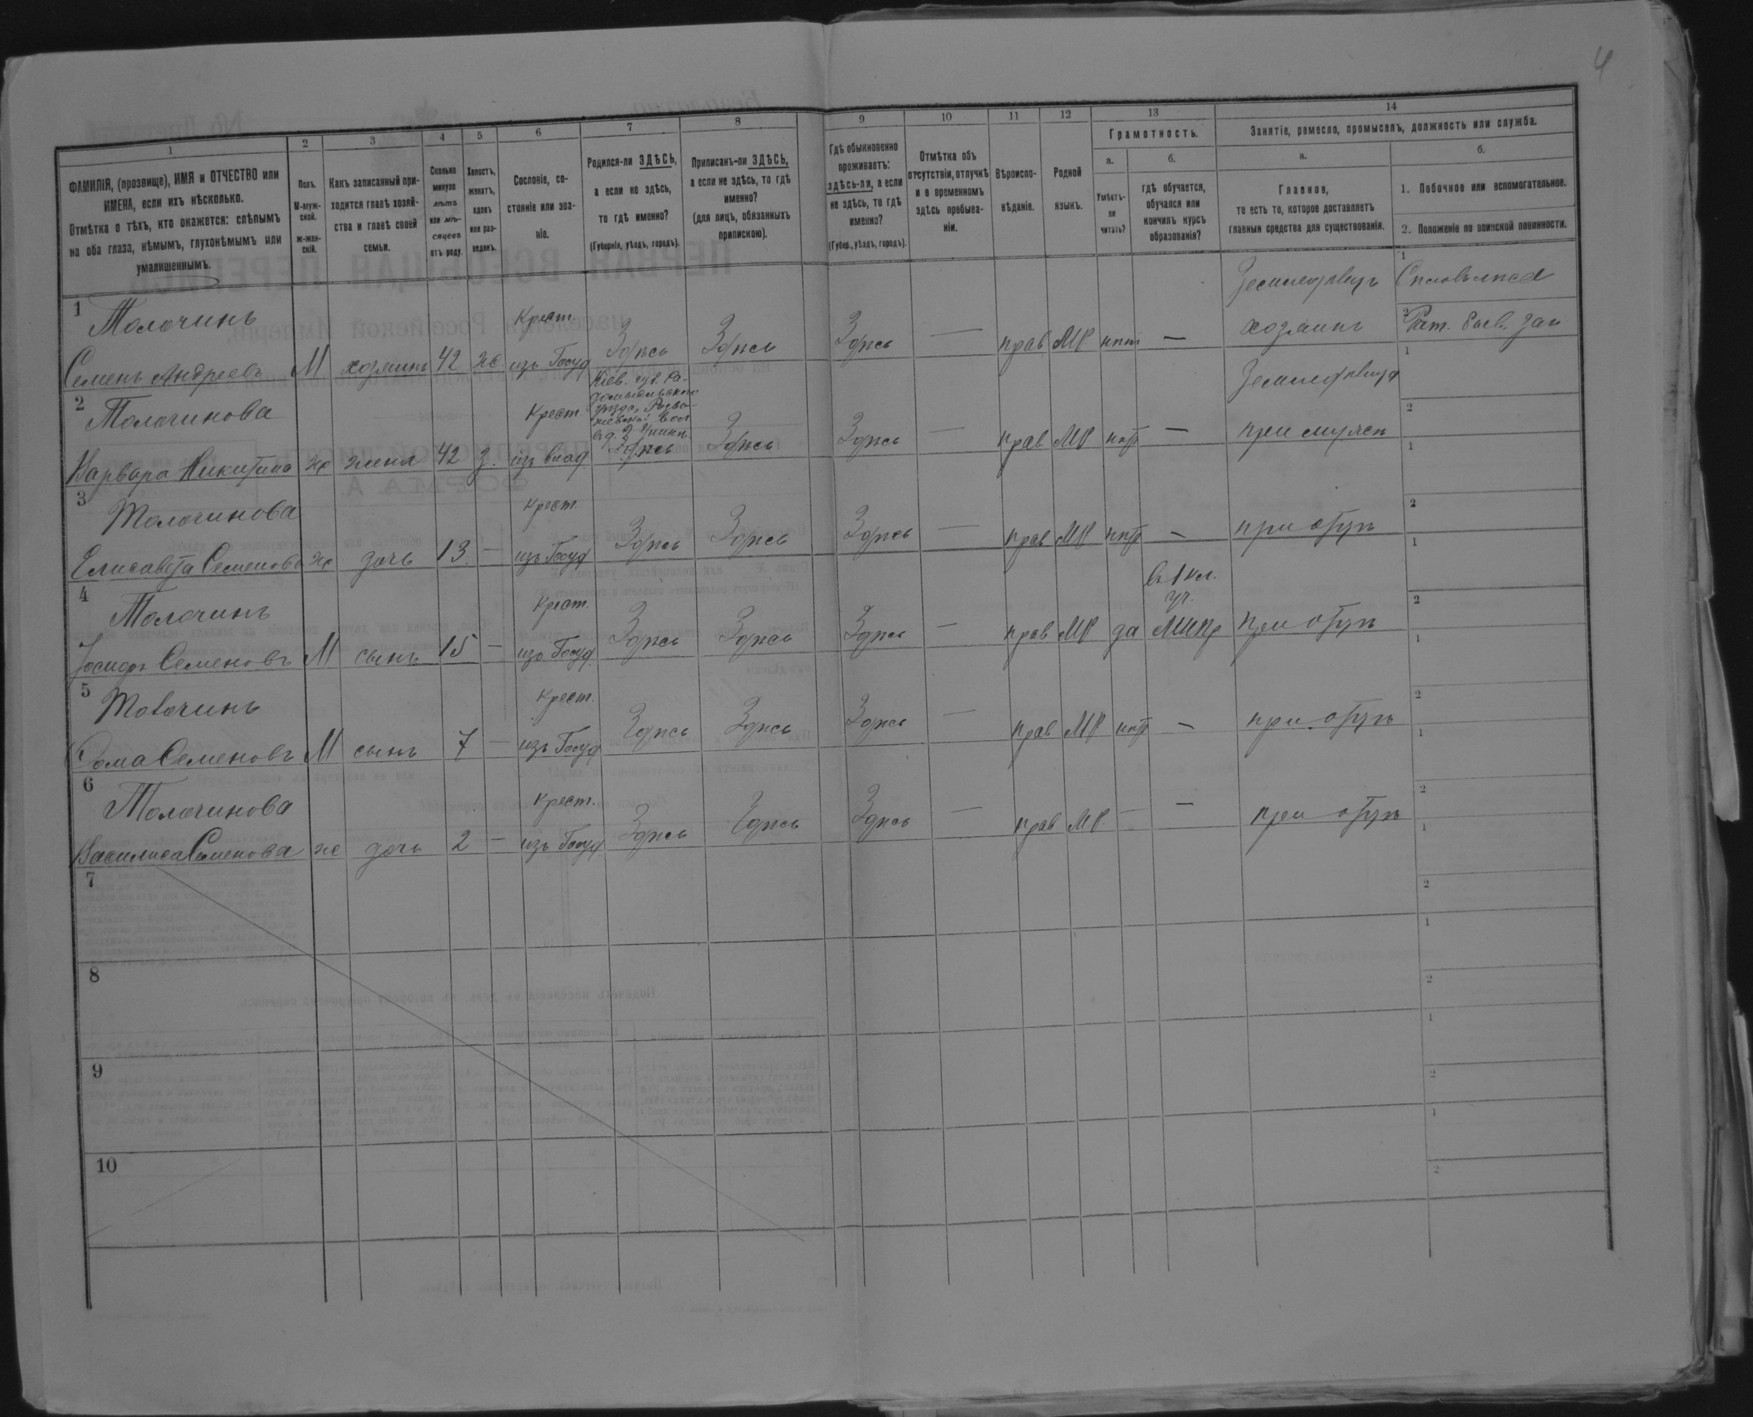 4
1
2
3
4
5
6
7
8
9
10
11
12
13
14
ФАМИЛІЯ, (прозвище), ИМЯ и ОТЧЕСТВО или
ИМЕНА, если ихъ нѣсколько.
Отмѣтка о тѣхъ, кто окажется: слѣпымъ
на оба глаза, нѣмымъ, глухонѣмымъ или
умалишеннымъ.
Полъ.
М-муж-
ской.
Ж-жен-
скій.
Какъ записанный при-
ходится главѣ хозяй-
ства и главѣ своей
семьи.
Сколько
минуло
лѣтъ
или мѣ-
сяцевъ
отъ роду.
Холостъ,
женатъ,
вдовъ
или раз-
веденъ.
Сословіе, со-
стояніе или зва-
ніе.
Родился-ли ЗДѢСЬ,
а если не здѣсь,
то гдѣ именно?
(Губернія, уѣздъ, городъ).
Приписанъ-ли ЗДѢСЬ,
а если не здѣсь, то гдѣ
именно?
(для лицъ, обязанныхъ
припискою).
Гдѣ обыкновенно
проживаетъ:
здѣсь-ли, а если
не здѣсь, то гдѣ
именно?
(Губер., уѣздъ, городъ).
Отмѣтка объ
отсутствіи, отлучкѣ
и о временномъ
здѣсь пребыва-
ніи.
Вѣроиспо-
вѣданіе.
Родной
языкъ.
Грамотность.
а.
Умѣетъ-
ли
читать?
б.
гдѣ обучается,
обучался или
кончилъ курсъ
образованія?
Занятіе, ремесло, промыселъ, должность или служба.
а.
Главное,
то есть то, которое доставляетъ
главныя средства для существованія.
б.
1. Побочное или вспомогательное.
2. Положеніе по воинской повинности.
1 Толочинъ Крест. Земледѣлецъ 1
Семенъ Андреевъ М хозяинъ 42 ж изъ Госуд Здѣсь Здѣсь Здѣсь — прав МР нѣт — хозяинъ 2
2 Толочинова Крест Кіев. губ. Ра- Земледѣлица 1
Варвара Никитина ж жена 42 з. из влад Здѣсь Здѣсь — прав МР нѣт — при мужѣ 2
3 Толочинова крест. 1
Елисавета Семенова ж дочь 13 — изъ Госуд Здѣсь Здѣсь Здѣсь — прав МР нѣт — при отцѣ 2
4 Толочинъ Крест. в 1 кл. 1
Іосифъ Семеновъ М сынъ 15 — изъ Госуд. Здѣсь Здѣсь Здѣсь — прав МР да при отцѣ 2
5 Толочинъ крест. 1
Фома Семеновъ М сынъ 7 — изъ Госуд Здѣсь Здѣсь Здѣсь — прав МР нѣт — при отцѣ 2
6 Толочинова Крест. 1
Василиса Семенова ж дочь 2 — изъ Госуд Здѣсь Здѣсь Здѣсь — прав МР — — при отцѣ 2
7
1
2
8
1
2
9
1
2
10
1
2